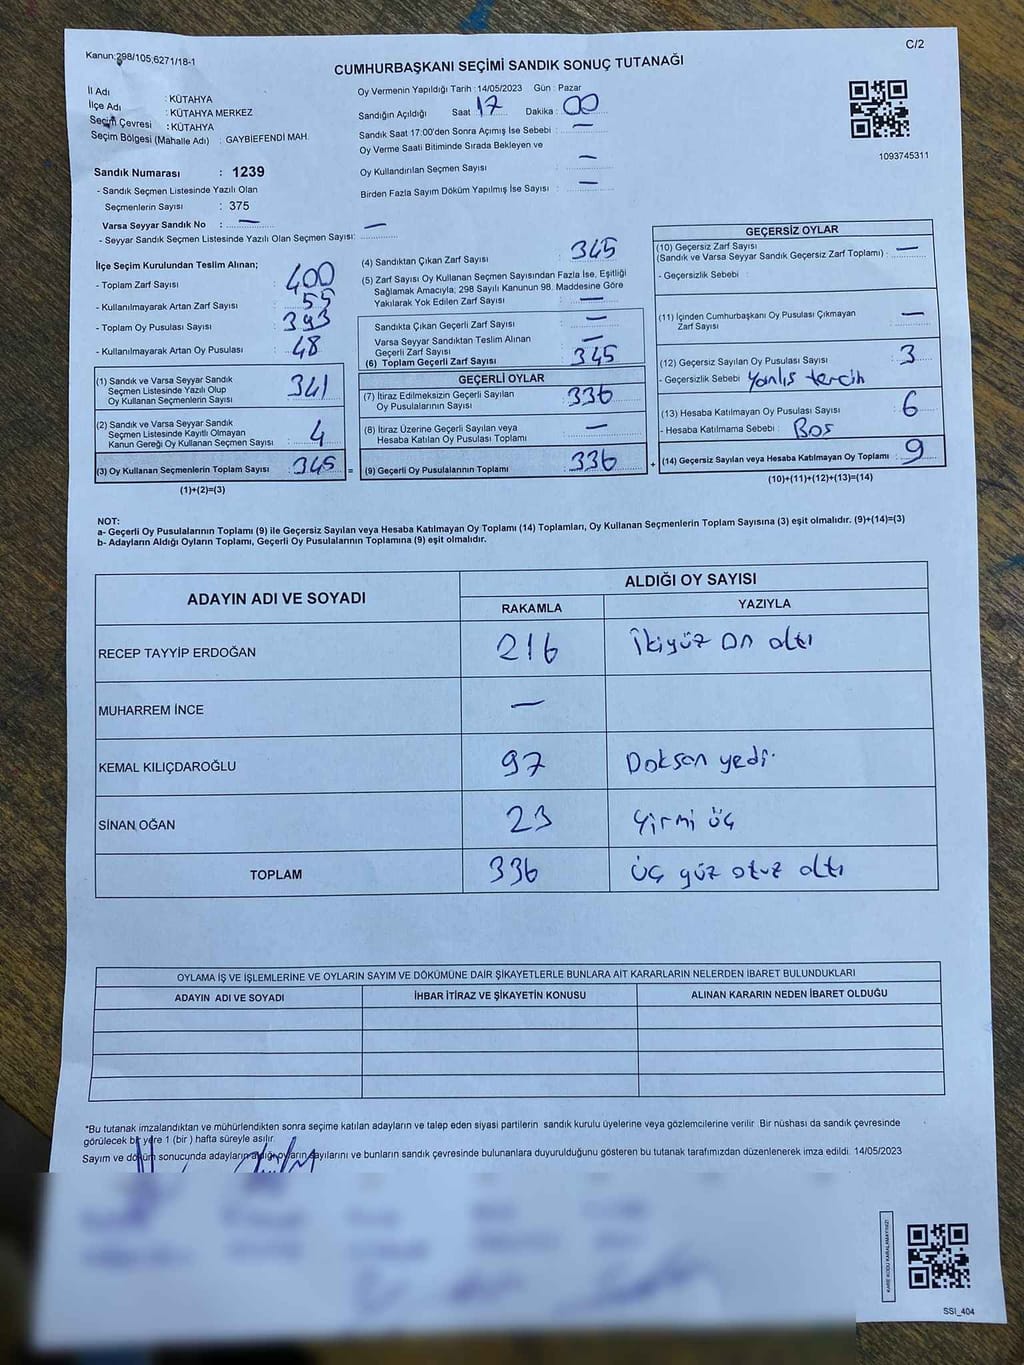 Kanun:298/105,6271/18-1
C/2
CUMHURBAŞKANI SEÇİMİ SANDIK SONUÇ TUTANAĞI
İl Adı : KÜTAHYA
İlçe Adı : KÜTAHYA MERKEZ
Seçim Çevresi : KÜTAHYA
Seçim Bölgesi (Mahalle Adı) : GAYBİEFENDİ MAH.
Oy Vermenin Yapıldığı Tarih : 14/05/2023 Gün : Pazar
Sandığın Açıldığı Saat 17 Dakika : 00
Sandık Saat 17:00'den Sonra Açımış İse Sebebi : —
Oy Verme Saati Bitiminde Sırada Bekleyen ve
Oy Kullandırılan Seçmen Sayısı : —
Birden Fazla Sayım Döküm Yapılmış İse Sayısı : —
1093745311
Sandık Numarası : 1239
- Sandık Seçmen Listesinde Yazılı Olan
Seçmenlerin Sayısı : 375
Varsa Seyyar Sandık No : —
- Seyyar Sandık Seçmen Listesinde Yazılı Olan Seçmen Sayısı: —
İlçe Seçim Kurulundan Teslim Alınan;
- Toplam Zarf Sayısı : 400
- Kullanılmayarak Artan Zarf Sayısı : 55
- Toplam Oy Pusulası Sayısı : 393
- Kullanılmayarak Artan Oy Pusulası : 48
(1) Sandık ve Varsa Seyyar Sandık
Seçmen Listesinde Yazılı Olup
Oy Kullanan Seçmenlerin Sayısı : 341
(2) Sandık ve Varsa Seyyar Sandık
Seçmen Listesinde Kayıtlı Olmayan
Kanun Gereği Oy Kullanan Seçmen Sayısı : 4
(3) Oy Kullanan Seçmenlerin Toplam Sayısı : 345
(1)+(2)=(3)
(4) Sandıktan Çıkan Zarf Sayısı : 345
(5) Zarf Sayısı Oy Kullanan Seçmen Sayısından Fazla İse, Eşitliği
Sağlamak Amacıyla, 298 Sayılı Kanunun 98. Maddesine Göre
Yakılarak Yok Edilen Zarf Sayısı : —
Sandıkta Çıkan Geçerli Zarf Sayısı : —
Varsa Seyyar Sandıktan Teslim Alınan
Geçerli Zarf Sayısı : —
(6) Toplam Geçerli Zarf Sayısı : 345
GEÇERLİ OYLAR
(7) İtiraz Edilmeksizin Geçerli Sayılan
Oy Pusulalarının Sayısı : 336
(8) İtiraz Üzerine Geçerli Sayılan veya
Hesaba Katılan Oy Pusulası Toplamı : —
= (9) Geçerli Oy Pusulalarının Toplamı : 336
GEÇERSİZ OYLAR
(10) Geçersiz Zarf Sayısı
(Sandık ve Varsa Seyyar Sandık Geçersiz Zarf Toplamı) : —
- Geçersizlik Sebebi :
(11) İçinden Cumhurbaşkanı Oy Pusulası Çıkmayan
Zarf Sayısı : —
(12) Geçersiz Sayılan Oy Pusulası Sayısı : 3
- Geçersizlik Sebebi : Yanlış tercih
(13) Hesaba Katılmayan Oy Pusulası Sayısı : 6
- Hesaba Katılmama Sebebi : Boş
+ (14) Geçersiz Sayılan veya Hesaba Katılmayan Oy Toplamı : 9
(10)+(11)+(12)+(13)=(14)
NOT:
a- Geçerli Oy Pusulalarının Toplamı (9) ile Geçersiz Sayılan veya Hesaba Katılmayan Oy Toplamı (14) Toplamları, Oy Kullanan Seçmenlerin Toplam Sayısına (3) eşit olmalıdır. (9)+(14)=(3)
b- Adayların Aldığı Oyların Toplamı, Geçerli Oy Pusulalarının Toplamına (9) eşit olmalıdır.
ADAYIN ADI VE SOYADI
ALDIĞI OY SAYISI
RAKAMLA YAZIYLA
RECEP TAYYİP ERDOĞAN 216 İkiyüz on altı
MUHARREM İNCE —
KEMAL KILIÇDAROĞLU 97 Doksan yedi.
SİNAN OĞAN 23 Yirmi üç
TOPLAM 336 üç yüz otuz altı
OYLAMA İŞ VE İŞLEMLERİNE VE OYLARIN SAYIM VE DÖKÜMÜNE DAİR ŞİKAYETLERLE BUNLARA AİT KARARLARIN NELERDEN İBARET BULUNDUKLARI
ADAYIN ADI VE SOYADI İHBAR İTİRAZ VE ŞİKAYETİN KONUSU ALINAN KARARIN NEDEN İBARET OLDUĞU
*Bu tutanak imzalandıktan ve mühürlendikten sonra seçime katılan adayların ve talep eden siyasi partilerin sandık kurulu üyelerine veya gözlemcilerine verilir. Bir nüshası da sandık çevresinde
görülecek bir yere 1 (bir ) hafta süreyle asılır.
Sayım ve döküm sonucunda adayların aldığı oyların sayılarını ve bunların sandık çevresinde bulunanlara duyurulduğunu gösteren bu tutanak tarafımızdan düzenlenerek imza edildi. 14/05/2023
KARE KODU KARALAMAYINIZ!
SSİ_404